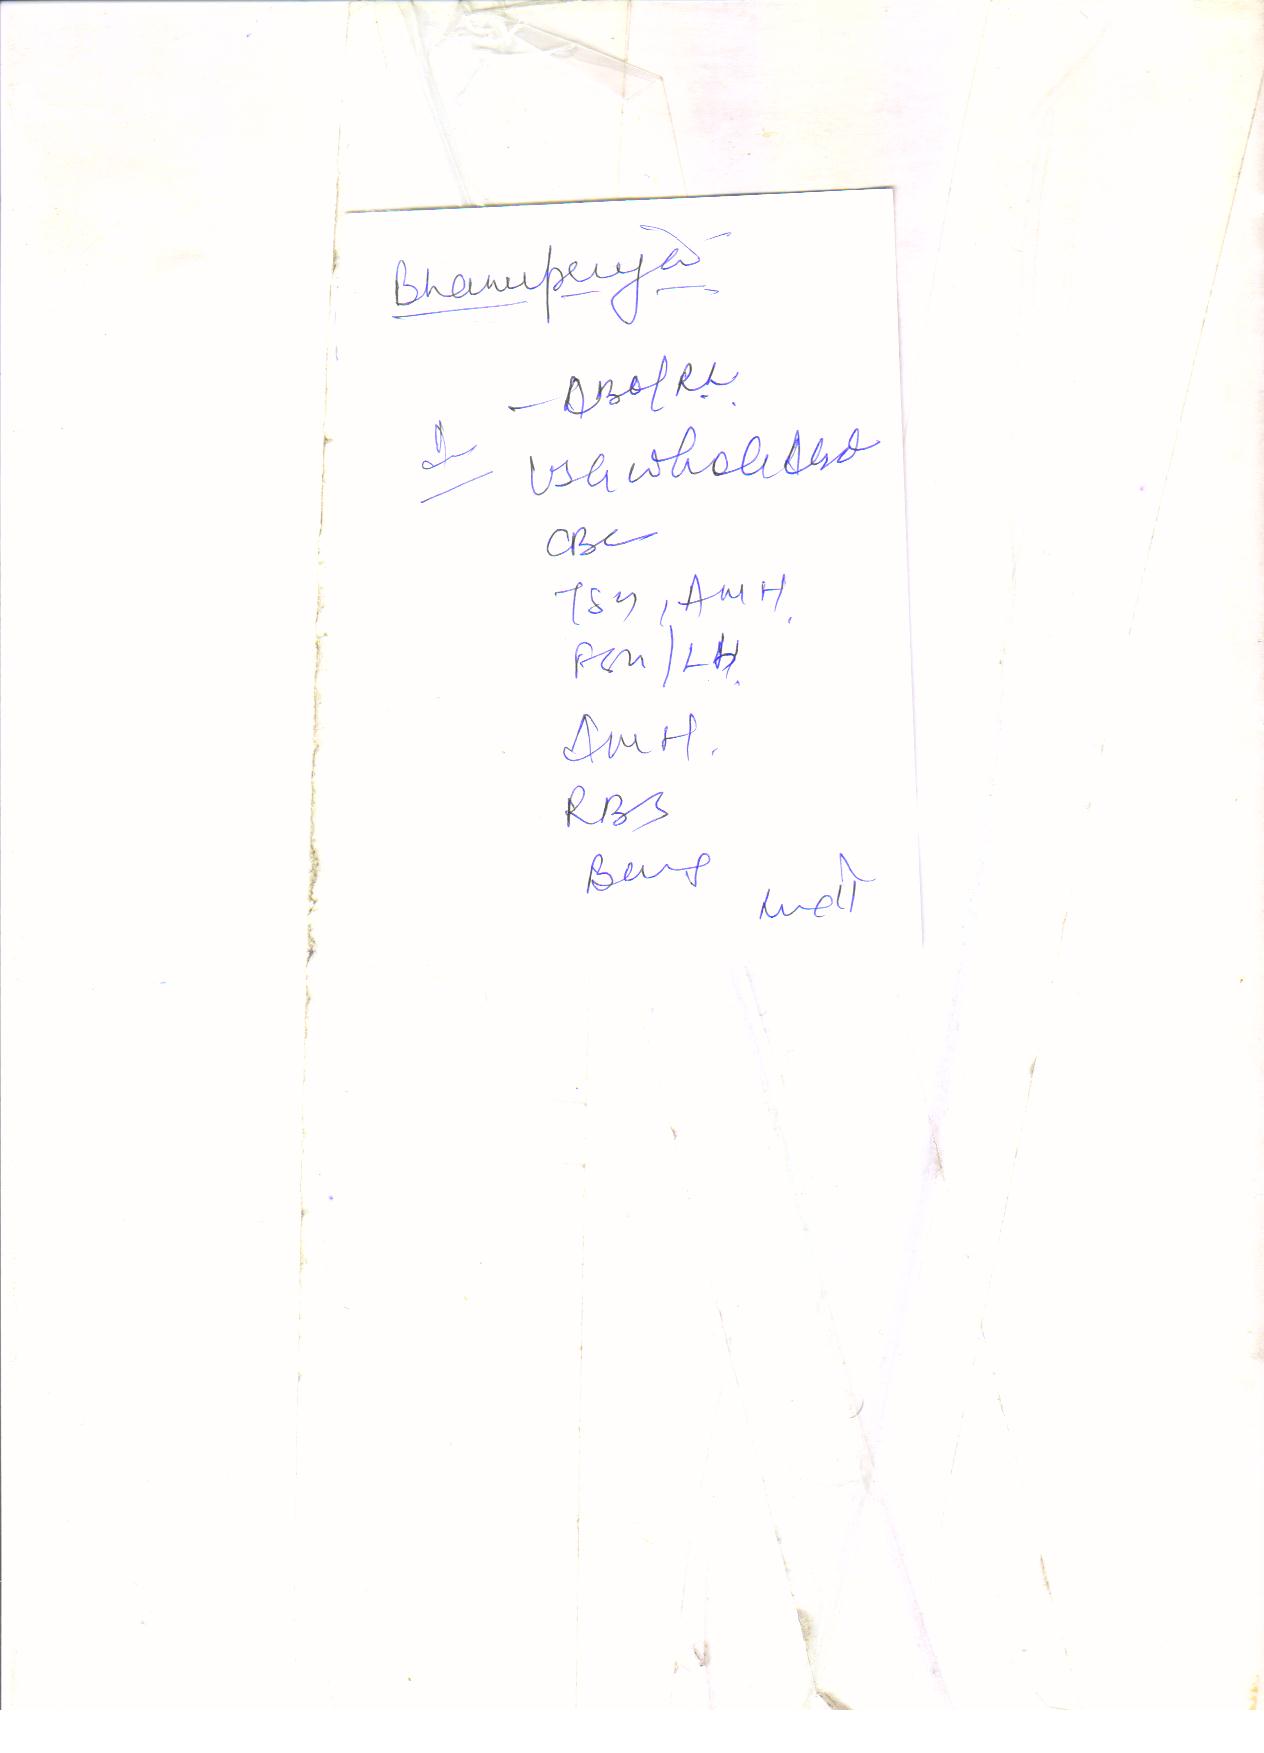 Bhanupriya
- ABO/RL.
USG whole Abd
CBC
TSH, AMH.
FSH/LH.
AMH.
RBS